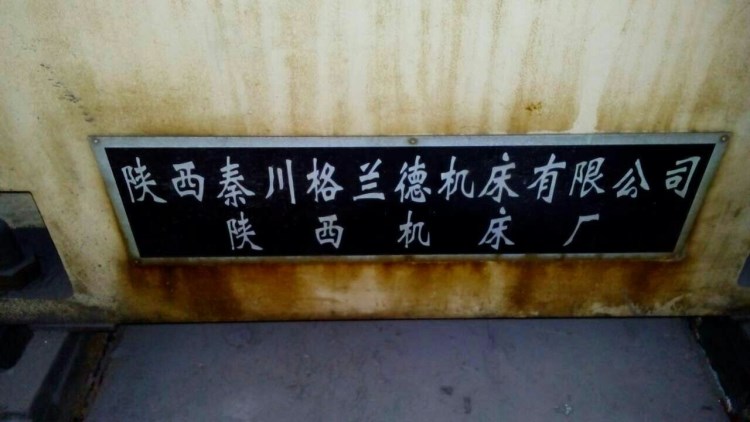 陕西秦川格兰德机床有限公司
陕西机床厂